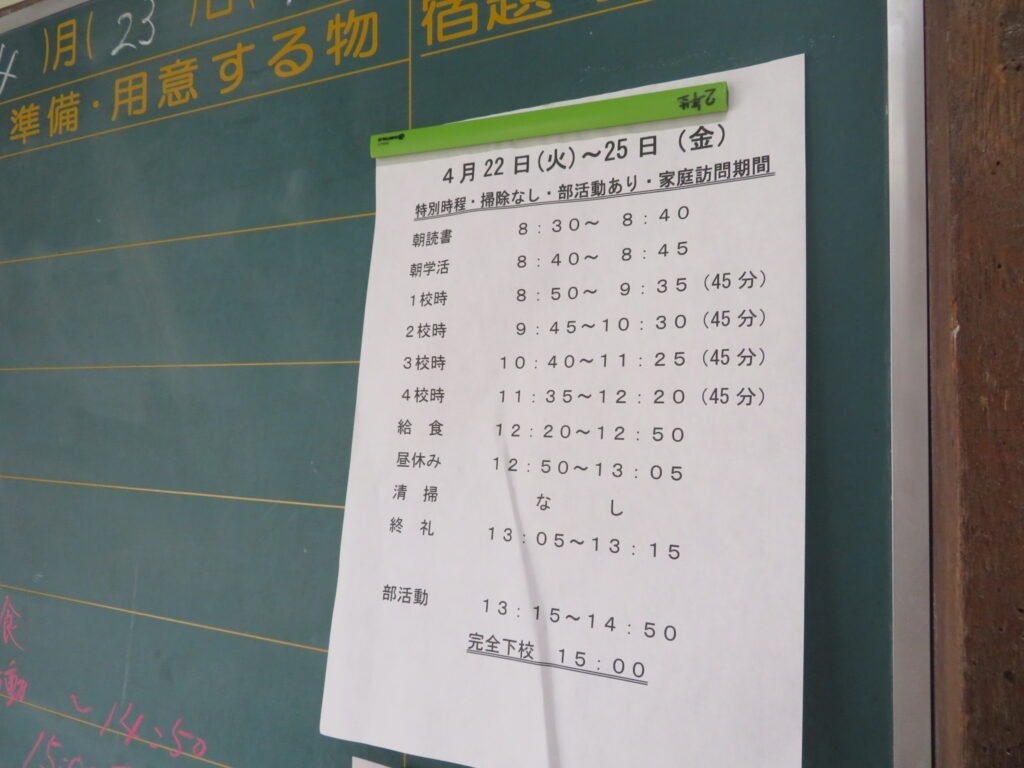 4 )月( 23 )日(
準備・用意する物
宿題
2年生
4月22日(火)～25日(金)
特別時程・掃除なし・部活動あり・家庭訪問期間
朝読書 8:30～ 8:40
朝学活 8:40～ 8:45
1校時 8:50～ 9:35 (45分)
2校時 9:45～10:30 (45分)
3校時 10:40～11:25 (45分)
4校時 11:35～12:20 (45分)
給 食 12:20～12:50
昼休み 12:50～13:05
清 掃 な し
終 礼 13:05～13:15
部活動 13:15～14:50
完全下校 15:00
食
動 ～14:50